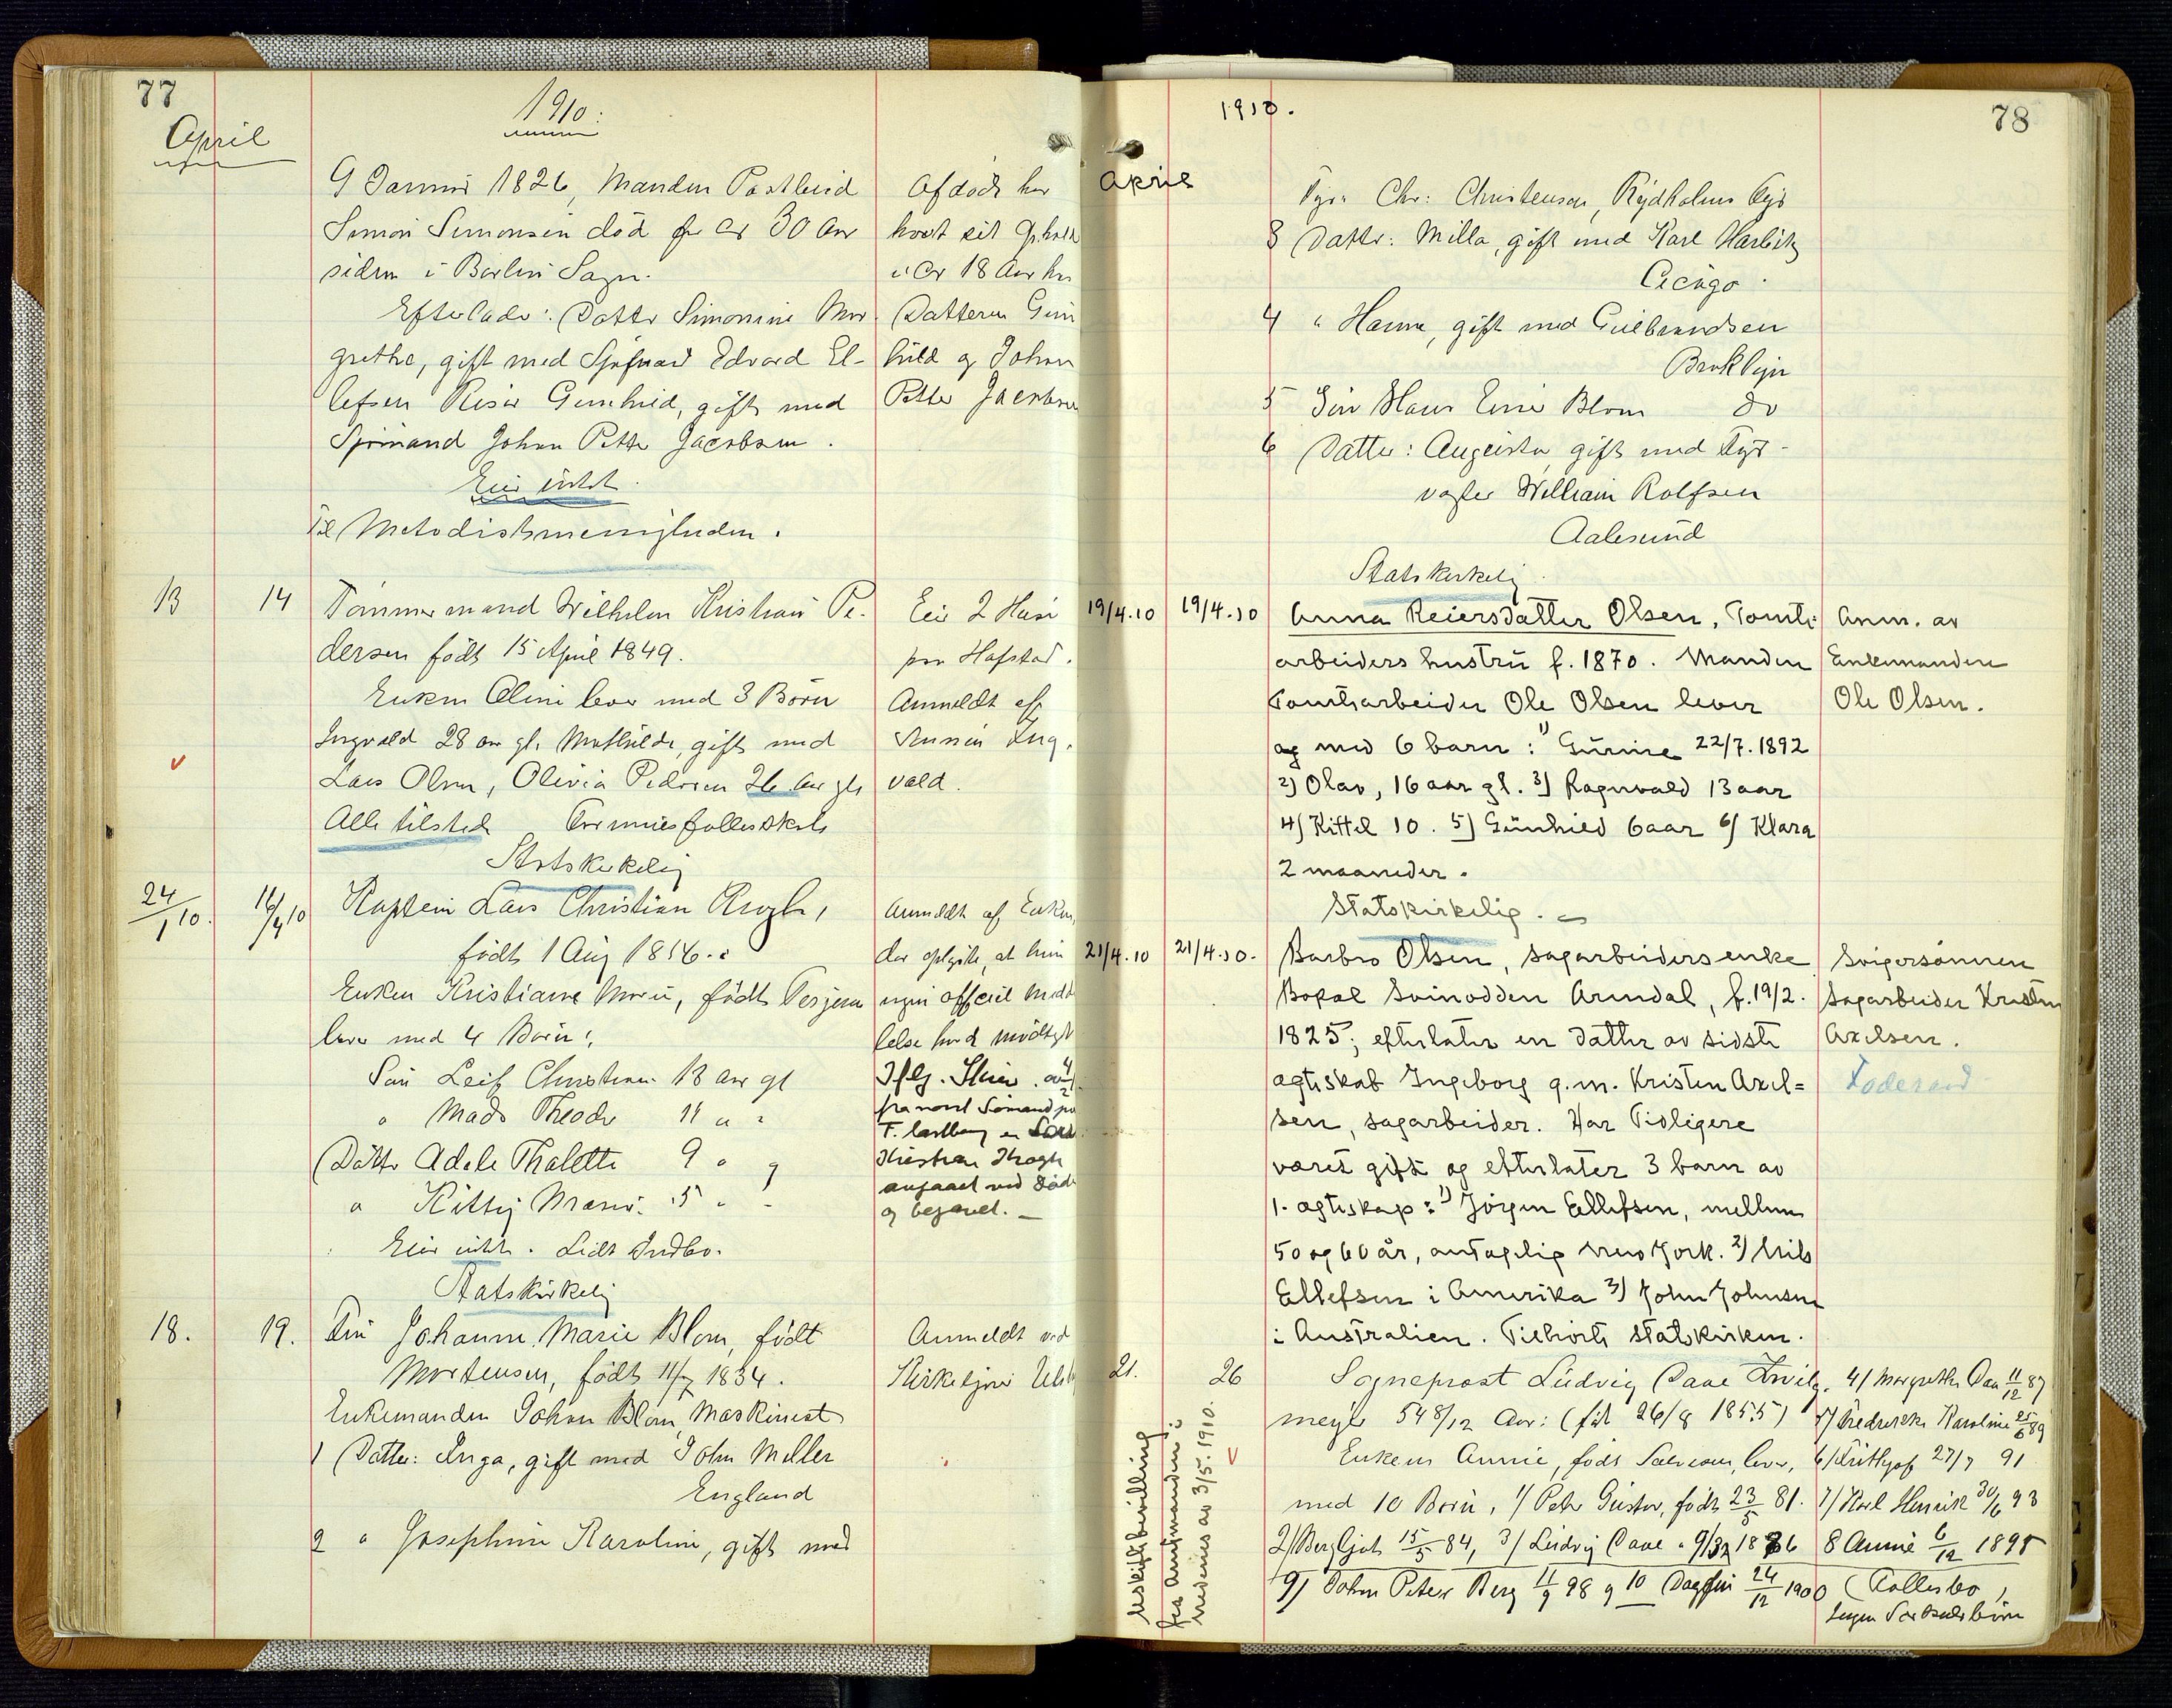 77
April
1910.
9 Januar 1826, Manden
Simon Simonsen död for ca 30 Aar
siden i Sogn.
Efterlader: Datter Simonine Mar
grethe, gift med Edvard El-
lefsen Risør Gunhild, gift med
Sjömand Johan Petter Jacobsen.
Eier intet
Til Metodistmenigheden.
Afdöde har
havt sit Ophold
i ca 18 Aar hos
Datteren Gun
hild og Johan
Petter Jacobsen
13
14
Tömmermand Wilhelm Kristian Pe-
dersen født 15 April 1849.
Enken Oline lever med 3 Börn
Ingvald 28 aar gl. Mathilde, gift med
Lars Olsen, Olivia Pedersen 26 aar gl
Alle tilstede
Statskirkelig
Eier 2 Huse
paa Hafstad.
Anmeldt af
Sønnen Ing.
vald.
24/1 10.
16/4 10
Kaptein Lars Christian Krogh,
født 1 Aug 1856.
Enken Kristiane Marie, født Terjesen
lever med 4 Börn:
Sön Leif Christian 13 aar gl
" Mads Theodor 11 " "
Datter Adele Thalette 9 " "
" Kitty Marie 5 " "
Eier intet. Lidt Indbo.
Statskirkelig
Anmeldt af Enken,
der oplyste, at hun
ingen officiel Medde
lelse havde modtaget
Iflg. Skriv. av
fra norsk Sömand
er Lars
Kristian Krogh
ved död
og begravet. —
18.
19.
Fru Johanne Marie Blom, født
Mortensen, født 11/7 1834.
Enkemanden Johan Blom, Maskinist
1 Datter: Inga, gift med John Miller
England
2 " Josephine Karoline, gift med
Anmeldt ved
Kirketjener
78
1910.
April
Fyr. Chr: Christensen, Rydholms Fyr
3 Datter: Milla, gift med Karl
Cicago.
4 " Hanna, gift med Gulbrandsen
Broklyn
5 Sön Hans Einar Blom do
6 Datter: Augusta, gift med Fyr-
vogter William Rolfsen
Aalesund
Statskirkelig
19/4.10
19/4.10
Anna Reiersdatter Olsen, Tomte
arbeiders hustru f. 1870. Manden
Tomtearbeider Ole Olsen lever
og med 6 barn: 1) Gurine 22/7.1892
2) Olav, 16 aar gl. 3) Ragnvald 13 aar
4) Kittel 10. 5) Gunhild 6 aar 6) Klara
2 maaneder.
Statskirkelig.
Anm. av
Enkemanden
Ole Olsen.
21/4.10
21/4.10.
Barbro Olsen, sagarbeidersenke
Bopæl Svinodden Arendal, f. 19/2.
1825; efterlater en datter av sidste
egteskab Ingeborg g.m. Kristen Axel=
sen, sagarbeider. Har tidligere
været gift og efterlater 3 barn av
1. egteskap: 1) Jörgen Ellefsen, mellem
50 og 60 år, antagelig New York. 2) Nils
Ellefsen i Amerika 3) John Johnsen
i Australien. Tilhörte statskirken.
Svigersønnen
Sagarbeider Kristen
Axelsen.
21.
26
Sogneprost Ludvig Daae Zwilg-
meyer 54 8/12 Aar: (født 26/8 1855)
Enken Annie, født lever,
med 10 Börn, 1/ Peter Gustav, født 23/5 81.
2/ Bergljot 15/5 84, 3/ Ludvig Daae 1886
9) Johan Peter Berg 11/9 98 og 10 Dagfin 24/12 1900
4/ Margrethe Daa 11/12 87
5/ Fredrikke Karoline 25/6 89
6/ Frithjof 27/7 91
7/ Karl Henrik 30/6 93
8 Annie 6/12 1895
(Kolbjørnsvik
ingen Særkuldsbörn
Uskiftebevilling
fra Amtmanden i
Nedenes av 3/5.1910.